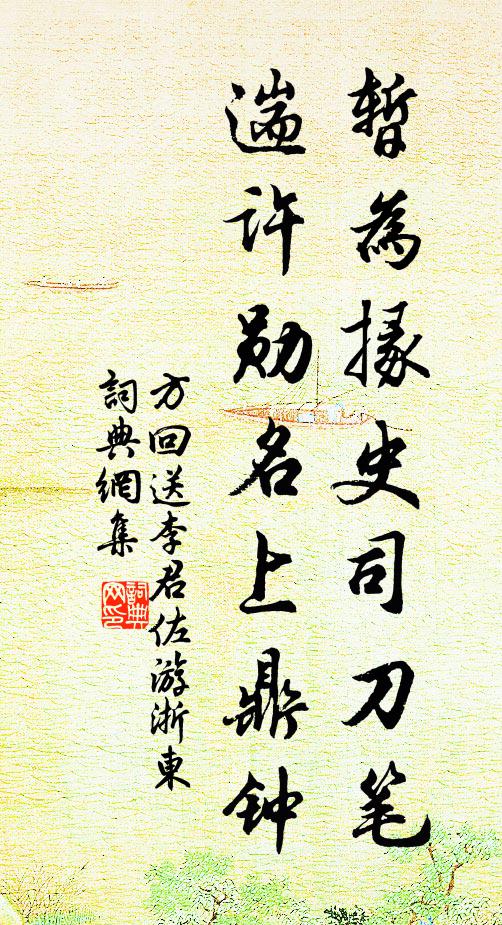 暫為掾史司刀笔
遄许勋名上鼎钟
方回送李君佐游浙東
詞典網集
詞典网印